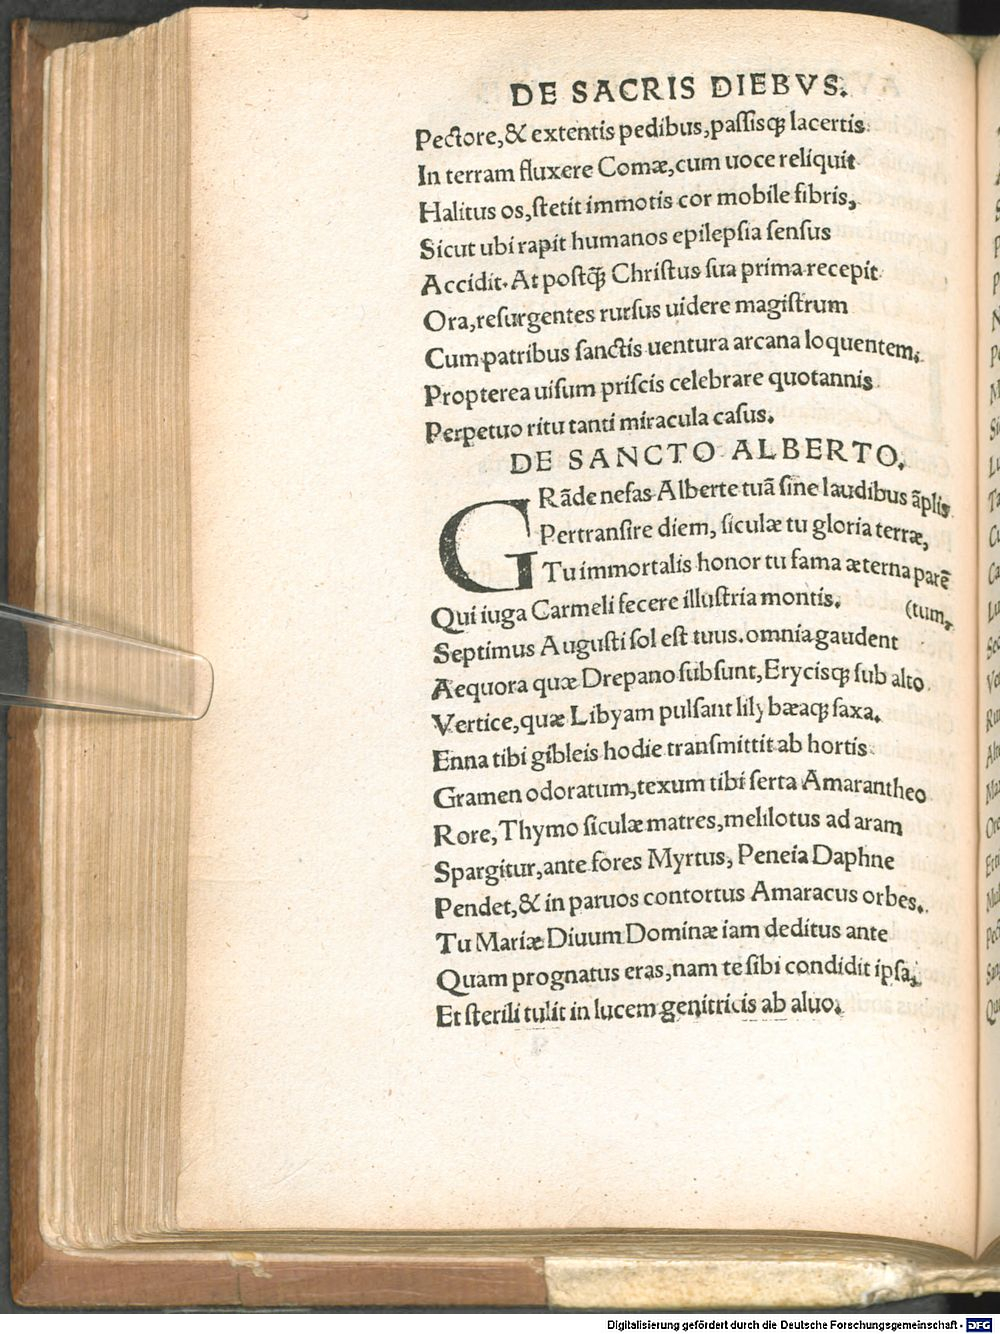 DE SACRIS DIEBVS.
Pectore,& extentis pedibus,paſſisqꝫ lacertis
In terram fluxere Comæ,cum uoce reliquit
Halitus os,ſtetit immotis cor mobile fibris,
Sicut ubi rapit humanos epilepſia ſenſus
Accidit. At poſtq̃ Chriſtus ſua prima recepit
Ora,reſurgentes rurſus uidere magiſtrum
Cum patribus ſanctis uentura arcana loquentem,
Propterea uiſum priſcis celebrare quotannis
Perpetuo ritu tanti miracula caſus.
DE SANCTO ALBERTO.
GRãde nefas Alberte tuã ſine laudibus ãplis
Pertranſire diem, ſiculæ tu gloria terræ,
Tu immortalis honor tu fama æterna parẽ
Qui iuga Carmeli fecere illuſtria montis. (tum,
Septimus Auguſti ſol eſt tuus.omnia gaudent
Aequora quæ Drepano ſubſunt,Erycisqꝫ ſub alto
Vertice,quæ Libyam pulſant lilybæaqꝫ ſaxa.
Enna tibi gibleis hodie tranſmittit ab hortis
Gramen odoratum,texum tibi ſerta Amarantheo
Rore,Thymo ſiculæ matres,melilotus ad aram
Spargitur,ante fores Myrtus, Peneia Daphne
Pendet,& in paruos contortus Amaracus orbes.
Tu Mariæ Diuum Dominæ iam deditus ante
Quam prognatus eras,nam te ſibi condidit ipſa,
Et ſterili tulit in lucem genitricis ab aluo.
Digitalisierung gefördert durch die Deutsche Forschungsgemeinschaft - DFG